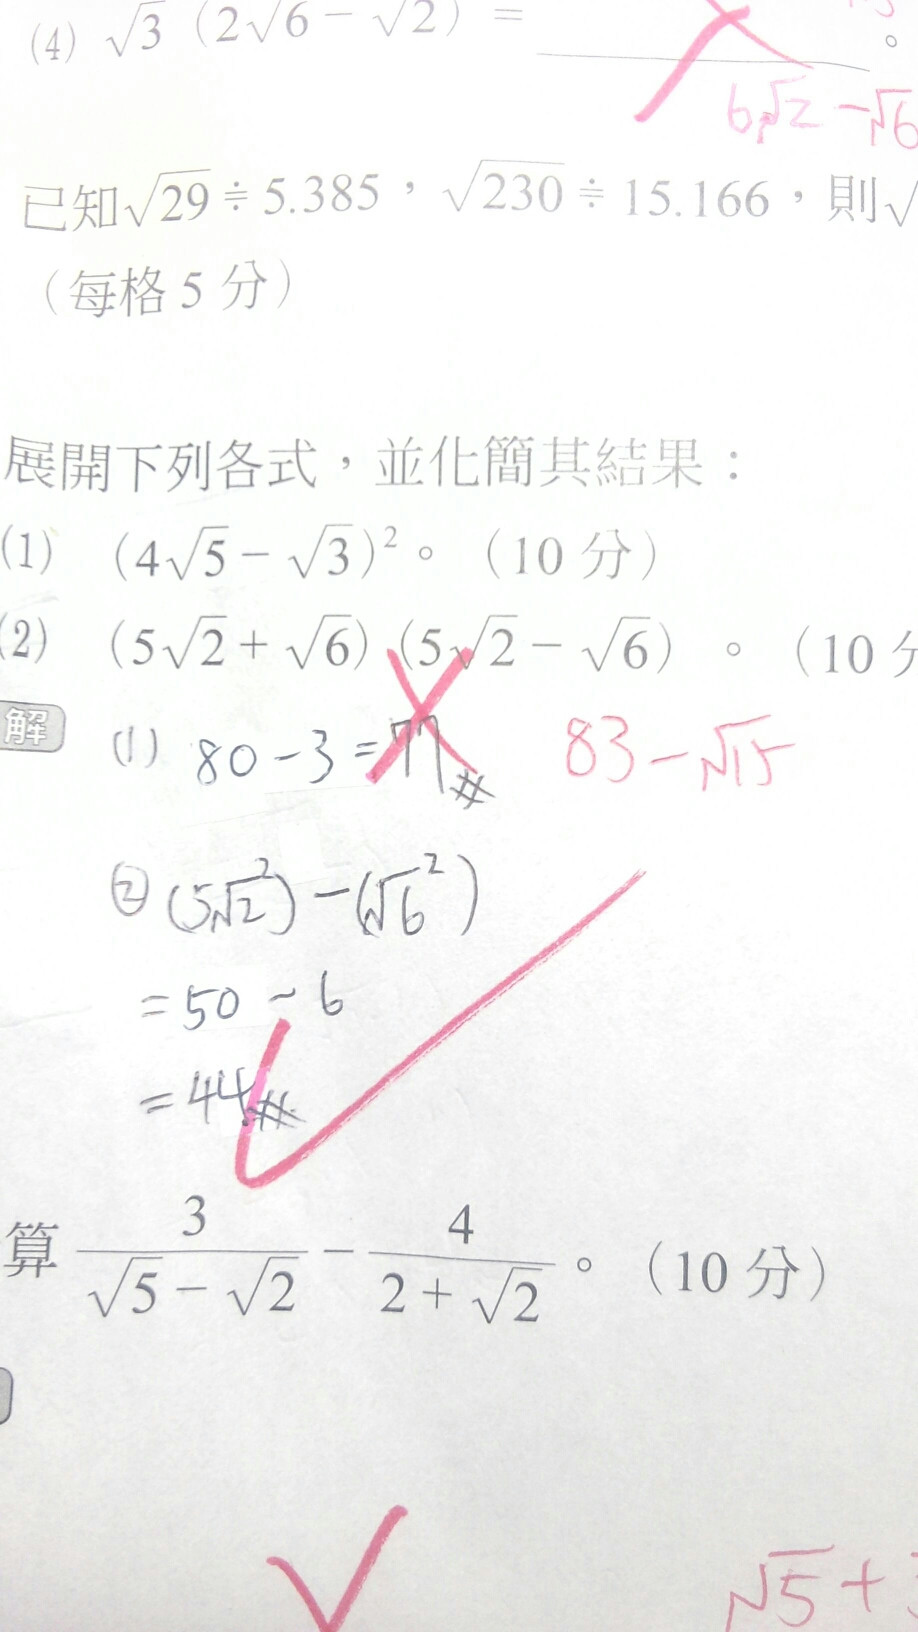 (4) √3 (2√6 − √2) = 。
6√2 − √6
已知√29≒5.385，√230≒15.166，則√
（每格5分）
展開下列各式，並化簡其結果：
(1) (4√5 − √3)²。（10分）
(2) (5√2 + √6)(5√2 − √6)。（10分
解 (1) 80 − 3 = 77# 83 − √15
② (5√2²) − (√6²)
= 50 − 6
= 44#
算 3/(√5 − √2) − 4/(2 + √2)。（10分）
√5 +